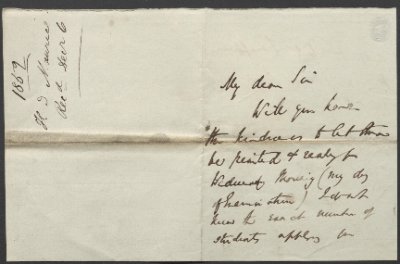 1862
F D Maurice
Recd Decr 6
My dear Sir
Will you have
the kindness to let these
be printed & ready for
Wednesday morning (my day
of Examination) I do not
know the exact number of
students